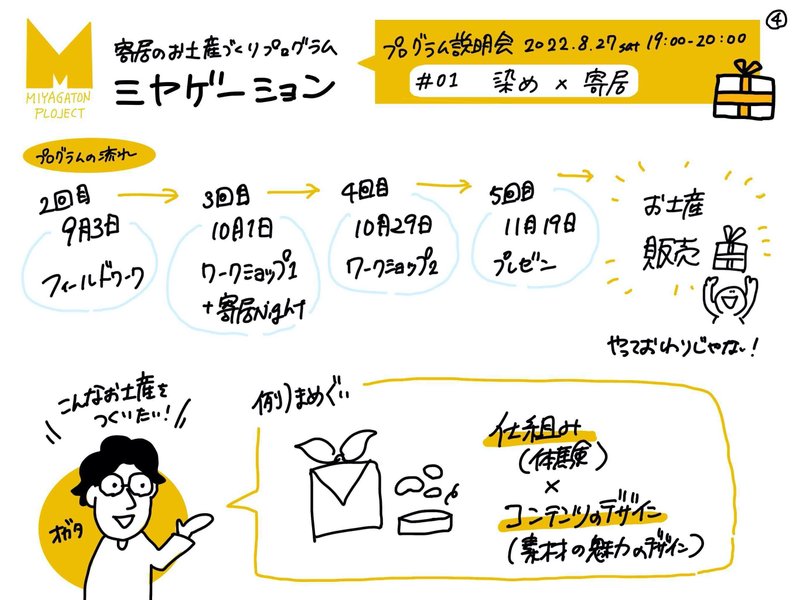 ④
MIYAGATON
PLOJECT
寄居のお土産づくりプログラム
ミヤゲーション
プログラム説明会 2022.8.27 sat 19:00-20:00
#01 染め × 寄居
プログラムの流れ
2回目
9月3日
フィールドワーク
3回目
10月1日
ワークショップ1
+寄居Night
4回目
10月29日
ワークショップ2
5回目
11月19日
プレゼン
お土産
販売
やっておわりじゃない!
こんなお土産を
つくりたい!
オガタ
例)まめぐい
仕組み
(体験)
×
コンテンツのデザイン
(素材の魅力のデザイン)